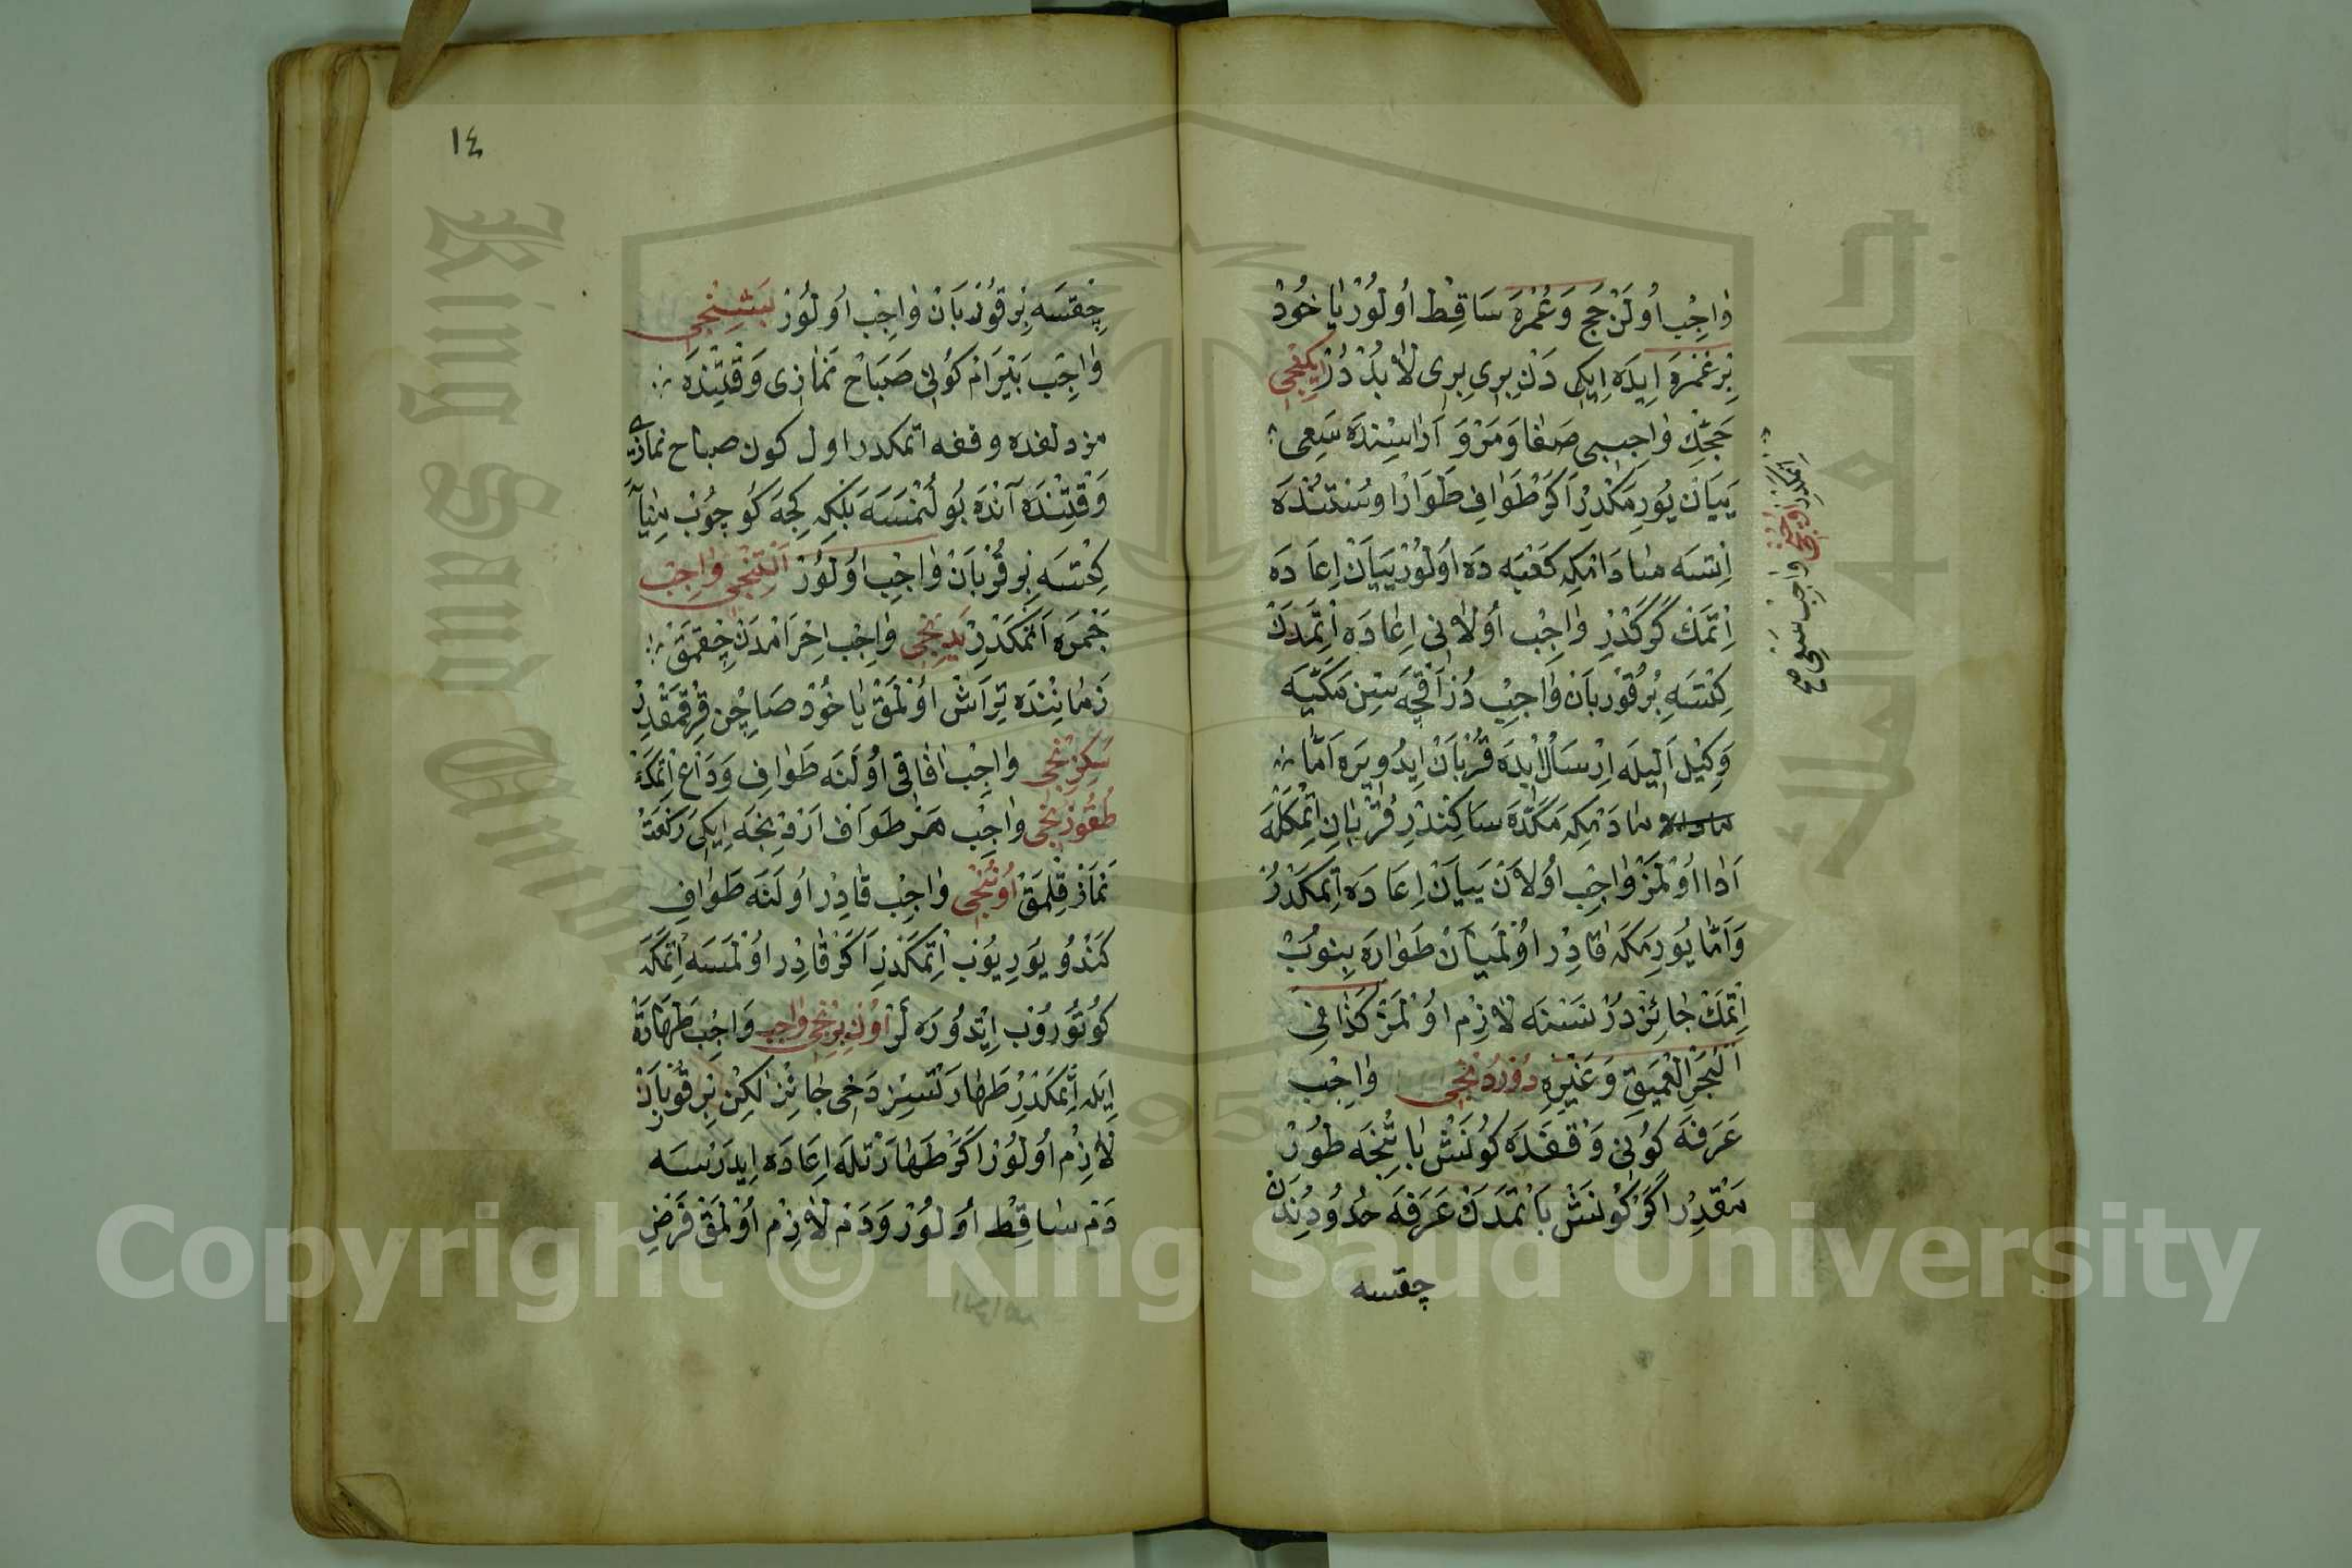 وَاجِبْ اُولَنْ حَج وَعُمْرَه سَاقِطْ اُولُورْ يَا خُودْ
بِرْ عُمْرَه اِيدَه اِيكِى دَنْ بِرِى بِرِى لَابُدْ دُرْ اِيكِنْجِى
حَجِّكْ وَاجِبِى صَفَا وَمَرْوَ اَرَاسِنْدَه سَعِى
يَيَانْ يُورِمَكْدِرْ اَكَرْ طَوَافِ طَوَارْ اوستنده
اِتسَه مادامكه كَعْبَه دَه اُولُورْ يَيَانْ اِعَادَه
اِتْمَكْ كَرَكْدِرْ وَاجِبْ اُولَانِى اِعَادَه اِتْمَدَنْ
كِتْسَه بُرْ قُورْبَانْ وَاجِبْ دُرْ اَقْچَه سِنْ مَكَّيَه
وَكِيلْ اَلِيلَه اِرْسَالْ اِيدَه قُرْبَانْ اِيدُويرَه اَمَّا
مادامكه مَكَّدَه سَاكِنْدِرِ قُرْبَانْ اِتْمَكْلَه
اَدَا اُولْمَزْ وَاجِبْ اُولَانْ يَيَانْ اِعَادَه اِتْمَكْدُرْ
وَاَمَّا يُورِمَكَه قَادِرْ اُولْمَيَانْ طَوَارَه بِنُوبْ
اِتْمَكْ جَائِزْ دُرْ نَسْنَه لَازِمْ اُولْمَزْ كَذَا فِى
اَلْبَحْرِ الْعَمِيقِ وَغَيْرِهِ دُورْدُنْجِى وَاجِبْ
عَرَفَه كُونِى وَقْفَدَه كُونَشْ بَاتِنْجَه طُورْ
مَقْدِرْ اَكَرْ كُونَشْ بَاتْمَدَنْ عَرَفَه حُدُودِنْدَنْ
چقسه
اِتمَكْدِرْ اوچُنْجِى وَاجِبْ سَعِى صح
١٤
چِقسَه بِرْ قُورْبَانْ وَاجِبْ اُولُورْ بَشِنْجِى
وَاجِبْ بَيْرَامْ كُونِى صَبَاحْ نَمَازِى وَقْتِنْدَه
مزدلفده وقفه اتمكدر اول كون صباح نمازى
وَقْتِنْدَه آنْدَه بُولُنْمَسَه بَلْكِه كِجَه كُوچُوبْ مِنَايَه
كِتْسَه بِرْ قُرْبَانْ وَاجِبْ اُولُورْ اَلْتِنْجِى وَاجِبْ
جَمْرَه اَتْمَكْدِرْ يَدِنْجِى وَاجِبْ اِحْرَامْدَنْ چِقمَقْ
زَمَانِنْدَه تِرَاشْ اُولْمَقْ يَا خُودْ صَاچِنْ قِرْقمَقْدِرْ
سَكِزِنْجِى وَاجِبْ اٰفَاقِى اُولَنَه طَوَافِ وَدَاعْ اِتْمَكْ
طُقُوزِنْجِى وَاجِبْ هَرْ طَوَافْ اَرْدِنْجَه اِيكِى رَكْعَتْ
نَمَازْ قِلْمَقْ اُونُنْجِى وَاجِبْ قَادِرْ اُولَنَه طَوَافِ
كَنْدُو يُورِيُوبْ اِتْمَكْدِرْ اَكَرْ قَادِرْ اُولْمَسَه اِتْمَكَه
كُوتُورُوبْ اِيتْدُورَه لَرْ اُونْ بِرِنْجِى وَاجِبْ وَاجِبْ طَهَارَةْ
اِيَلَه اِتْمَكْدِرْ طَهَارَتْسِزْ دَخِى جَائِزْ لٰكِنْ بِرْ قُوبَانْ
لَازِمْ اُولُورْ اَكَرْ طَهَارَتْلَه اِعَادَه اِيدَرْسَه
دَمْ سَاقِطْ اُولُورْ وَدَمْ لَازِمْ اُولْمَقْ فَرْضِ
Copyright © King Saud University